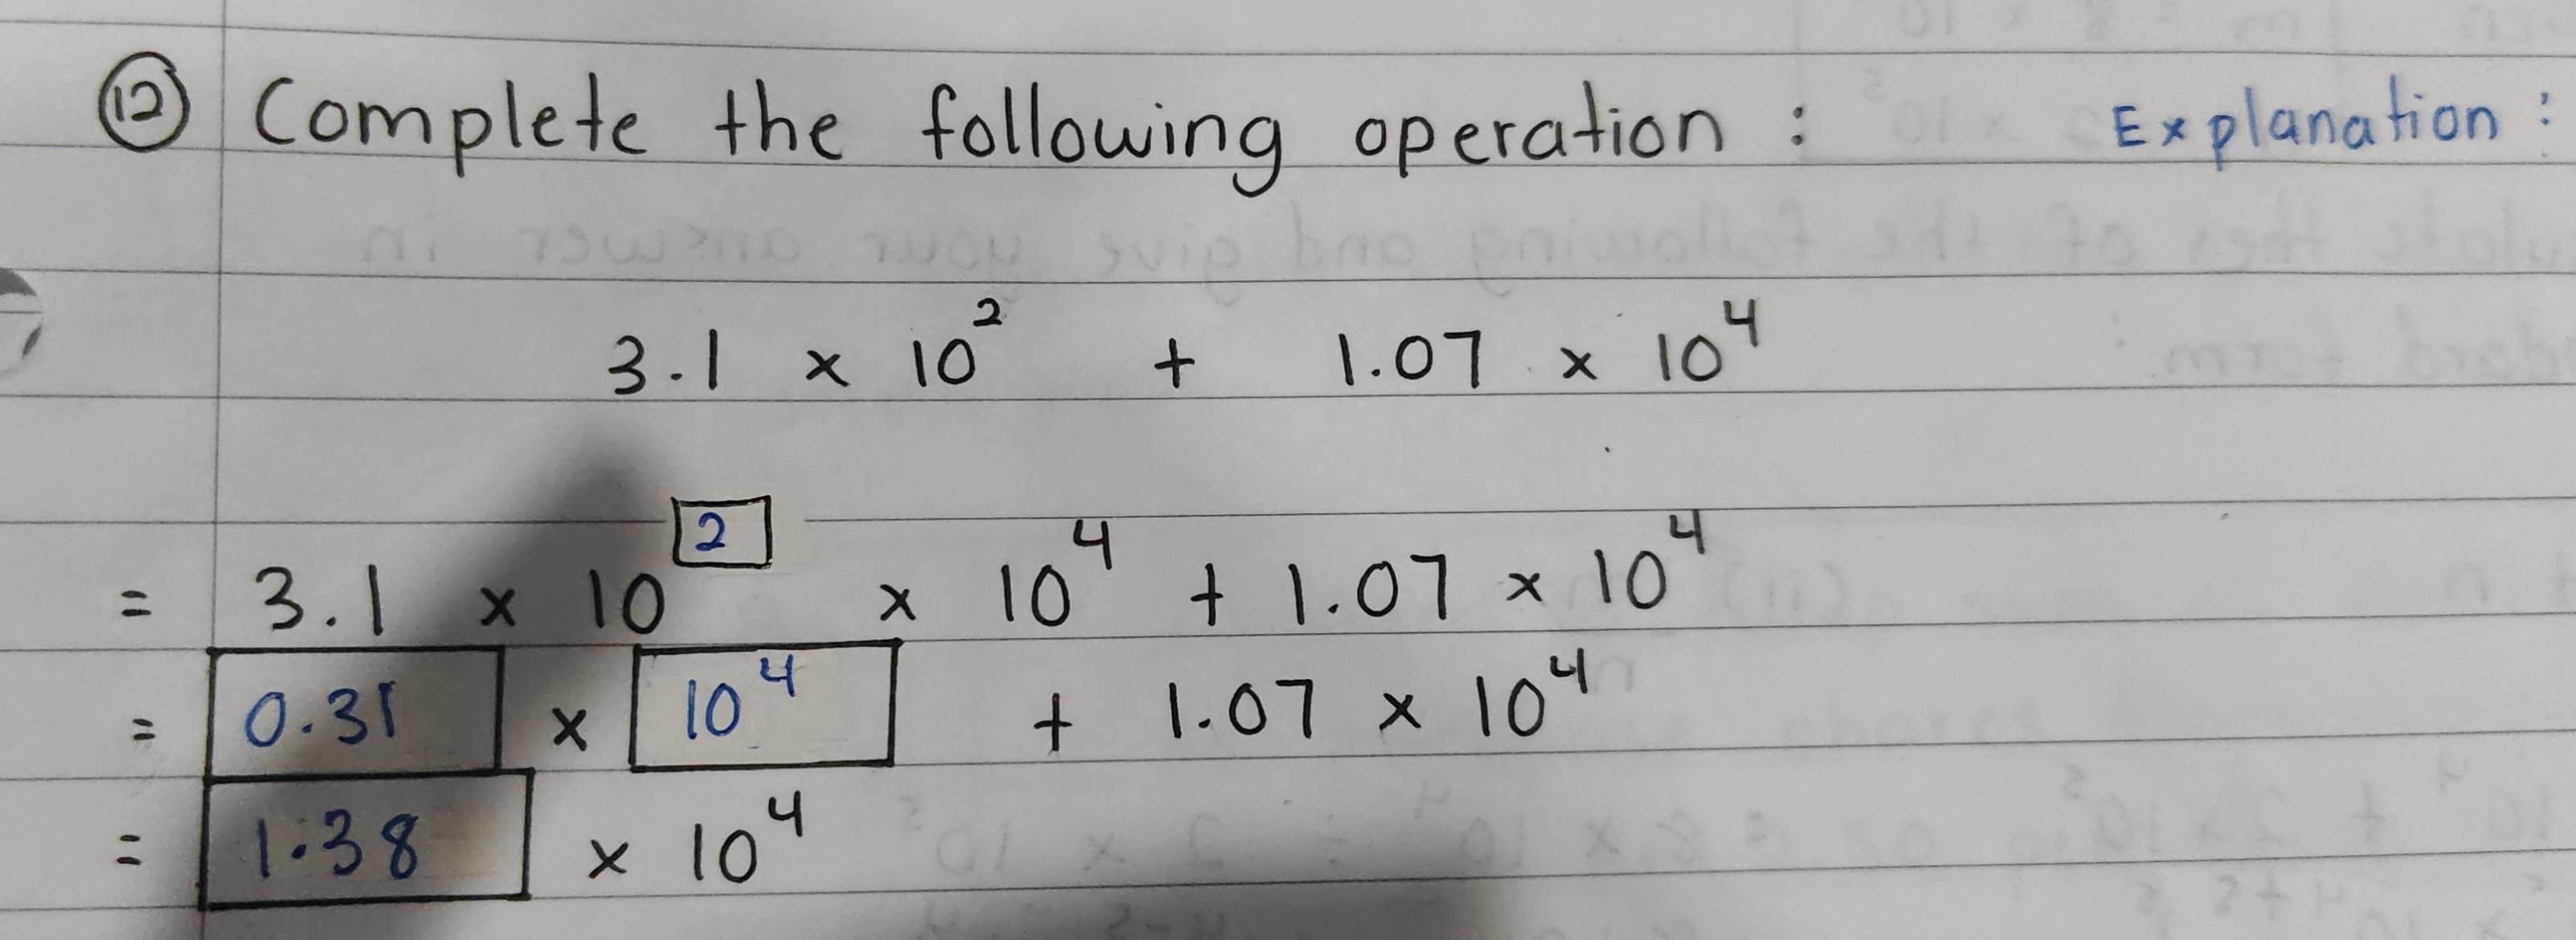 12 Complete the following operation : Explanation :
3.1 x 10² + 1.07 x 10⁴
= 3.1 x 10² x 10⁴ + 1.07 x 10⁴
= 0.31 x 10⁴ + 1.07 x 10⁴
= 1.38 x 10⁴